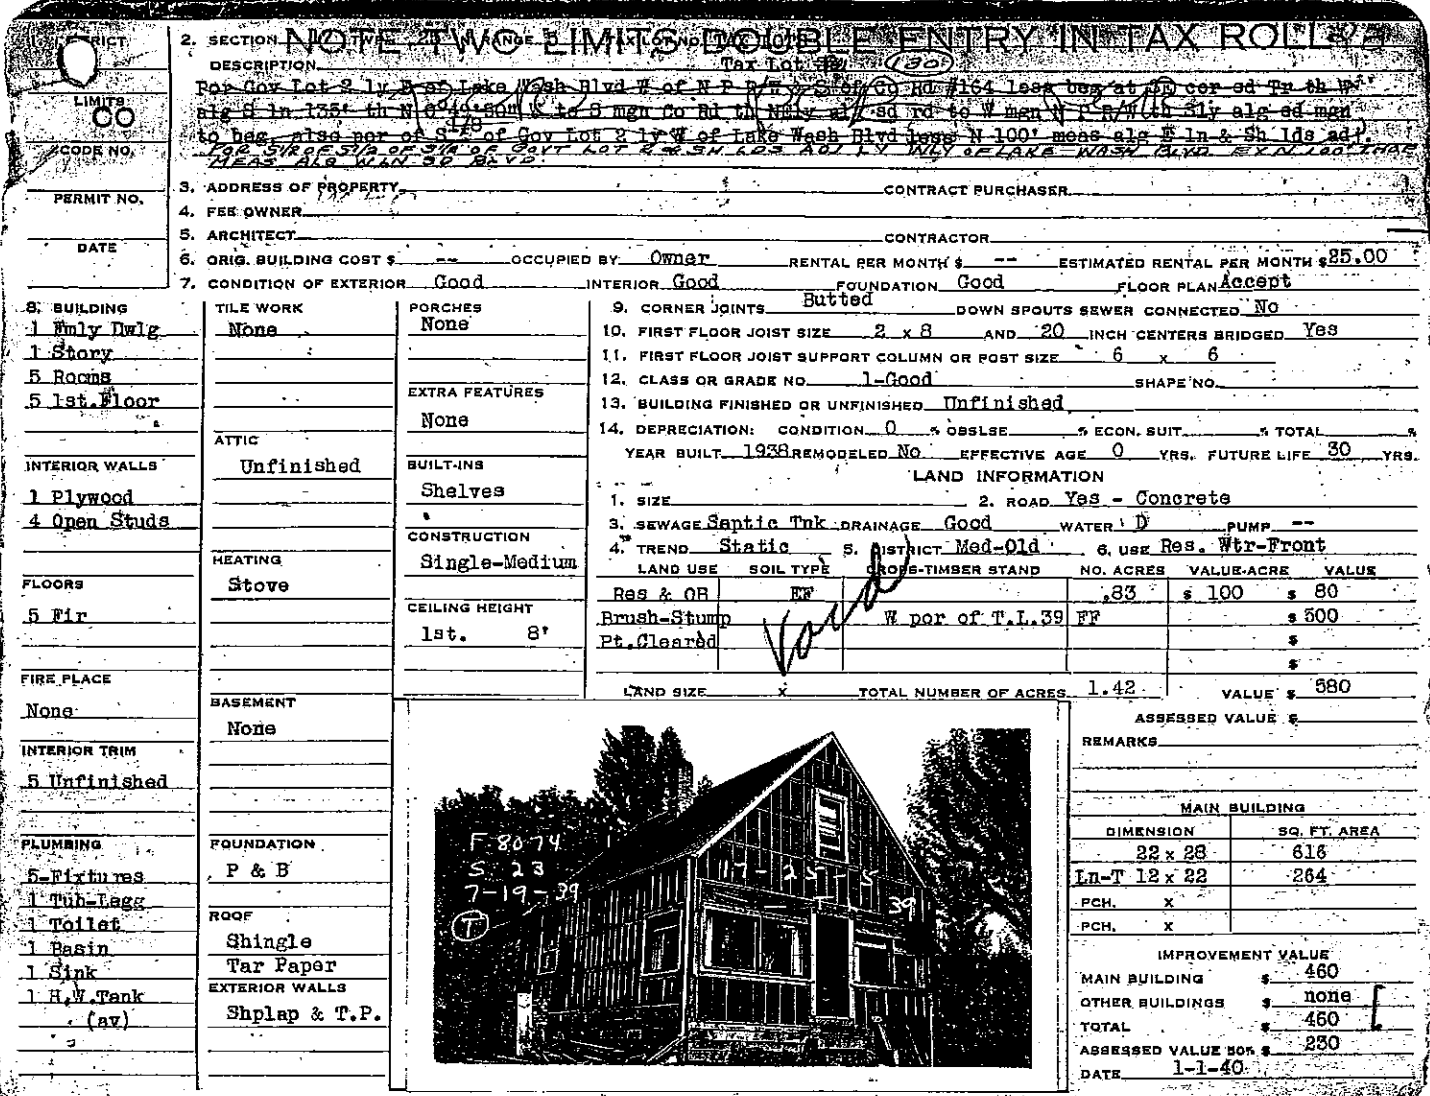 NOTE TWO LIMITS DOUBLE ENTRY IN TAX ROLL
LIMITS
CO
CODE NO.
PERMIT NO.
DATE
2. SECTION
DESCRIPTION Tax Lot
Por Gov Lot 2 ly E of Lake Wash Blvd W of N P R/W & S of Co Rd #164 less beg at SE cor sd Tr th W
alg S ln 135' th N 0°49'50" to S mgn Co Rd th Nely alg sd rd to W mgn N P R/W th Sly alg sd mgn
to beg also por of S 1/8 of Gov Lot 2 ly W of Lake Wash Blvd less N 100' meas alg E ln & Sh lds adj
MEAS ALG W LN SD BLVD.
3. ADDRESS OF PROPERTY CONTRACT PURCHASER
4. FEE OWNER
5. ARCHITECT CONTRACTOR
6. ORIG. BUILDING COST $ -- OCCUPIED BY Owner RENTAL PER MONTH $ -- ESTIMATED RENTAL PER MONTH $25.00
7. CONDITION OF EXTERIOR Good INTERIOR Good FOUNDATION Good FLOOR PLAN Accept
8. BUILDING
1 Fmly Dwlg
1 Story
5 Rooms
5 1st.Floor
INTERIOR WALLS
1 Plywood
4 Open Studs
FLOORS
5 Fir
FIRE PLACE
None
INTERIOR TRIM
5 Unfinished
PLUMBING
5-Fixtures
1 Tub-Legg
1 Toilet
1 Basin
1 Sink
1 H.W.Tank
(av)
TILE WORK
None
ATTIC
Unfinished
HEATING
Stove
BASEMENT
None
FOUNDATION
P & B
ROOF
Shingle
Tar Paper
EXTERIOR WALLS
Shplap & T.P.
PORCHES
None
EXTRA FEATURES
None
BUILT-INS
Shelves
CONSTRUCTION
Single-Medium
CEILING HEIGHT
1st. 8'
9. CORNER JOINTS Butted DOWN SPOUTS SEWER CONNECTED No
10. FIRST FLOOR JOIST SIZE 2 x 8 AND 20 INCH CENTERS BRIDGED Yes
11. FIRST FLOOR JOIST SUPPORT COLUMN OR POST SIZE 6 x 6
12. CLASS OR GRADE NO. 1-Good SHAPE NO.
13. BUILDING FINISHED OR UNFINISHED Unfinished
14. DEPRECIATION: CONDITION 0 % OBSLSE % ECON. SUIT. % TOTAL %
YEAR BUILT 1938 REMODELED No EFFECTIVE AGE 0 YRS. FUTURE LIFE 30 YRS.
LAND INFORMATION
1. SIZE 2. ROAD Yes - Concrete
3. SEWAGE Septic Tnk DRAINAGE Good WATER D PUMP --
4. TREND Static 5. DISTRICT Med-Old 6. USE Res. Wtr-Front
LAND USE SOIL TYPE CROPS-TIMBER STAND NO. ACRES VALUE-ACRE VALUE
Res & OR EF .83 $ 100 $ 80
Brush-Stump W por of T.L.39 FF $ 500
Pt.Cleared $
$
LAND SIZE x TOTAL NUMBER OF ACRES 1.42 VALUE $ 580
ASSESSED VALUE $
REMARKS
MAIN BUILDING
DIMENSION SQ. FT. AREA
22 x 28 616
Ln-T 12 x 22 264
PCH. x
PCH. x
IMPROVEMENT VALUE
MAIN BUILDING $ 460
OTHER BUILDINGS $ none
TOTAL $ 460
ASSESSED VALUE 50% $ 230
DATE 1-1-40
F-8074
S-23
7-19-39
T
39